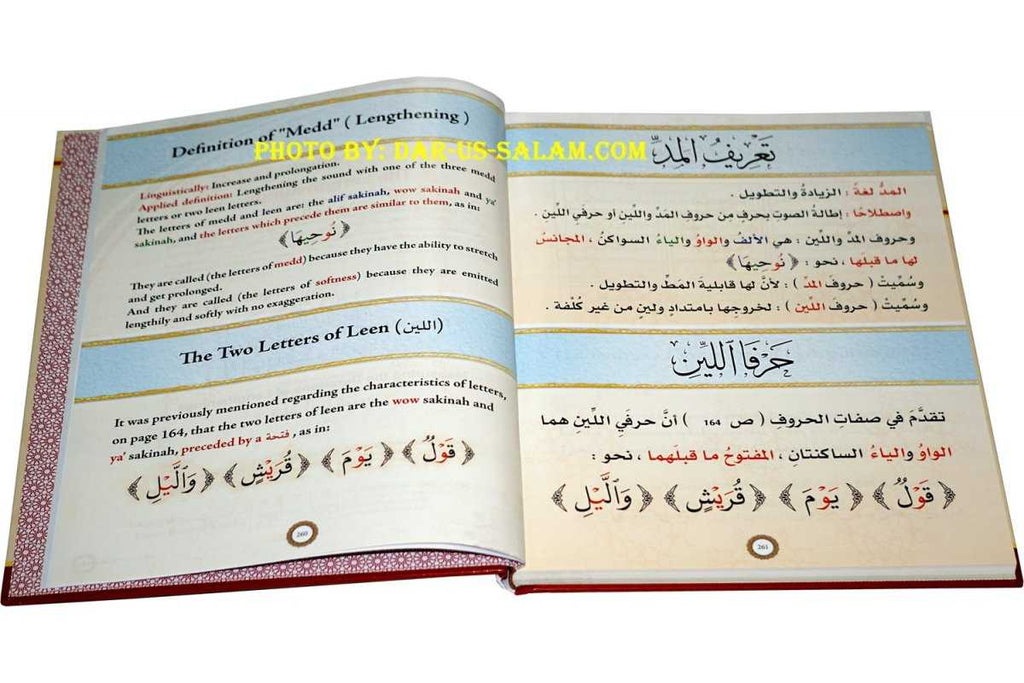 Definition of "Medd" ( Lengthening )
PHOTO BY: DAR-US-SALAM.COM
Linguistically: Increase and prolongation.
Applied definition: Lengthening the sound with one of the three medd
letters or two leen letters.
The letters of medd and leen are: the alif sakinah, wow sakinah and ya'
sakinah, and the letters which precede them are similar to them, as in:
﴿نُوحِيهَا﴾
They are called (the letters of medd) because they have the ability to stretch
and get prolonged.
And they are called (the letters of softness) because they are emitted
lengthily and softly with no exaggeration.
The Two Letters of Leen (اللين)
It was previously mentioned regarding the characteristics of letters,
on page 164, that the two letters of leen are the wow sakinah and
ya' sakinah, preceded by a فتحة , as in:
﴿قَوْلٌ﴾ ﴿يَوْمَ﴾ ﴿قُرَيْشٍ﴾ ﴿وَٱلَّيْلِ﴾
260
تَعْرِيفُ المَدِّ
المدُّ لغةً : الزيادةُ والتطويل .
واصطلاحًا : إطالةُ الصوتِ بحرفٍ مِن حروفِ المَدِّ واللِّينِ أو حرفَيِ اللِّين .
وحروف المدِّ واللِّين : هي الألفُ والواوُ والياءُ السواكنُ ، المجانسُ
لها ما قبلَها ، نحو : ﴿نُوحِيهَا﴾
وسُمِّيتْ ( حروفَ المدِّ ) : لأنَّ لها قابليةَ المَطِّ والتطويل .
وسُمِّيتْ ( حروفَ اللِّين ) : لخروجِها بامتدادٍ ولينٍ من غير كُلْفة .
حَرْفَا اللِّينِ
تقدَّمَ في صفاتِ الحروفِ ( ص 164 ) أنَّ حرفَيِ اللِّينِ هما
الواوُ والياءُ الساكنتانِ ، المفتوحُ ما قبلَهما ، نحو :
﴿قَوْلٌ﴾ ﴿يَوْمَ﴾ ﴿قُرَيْشٍ﴾ ﴿وَٱلَّيْلِ﴾
261